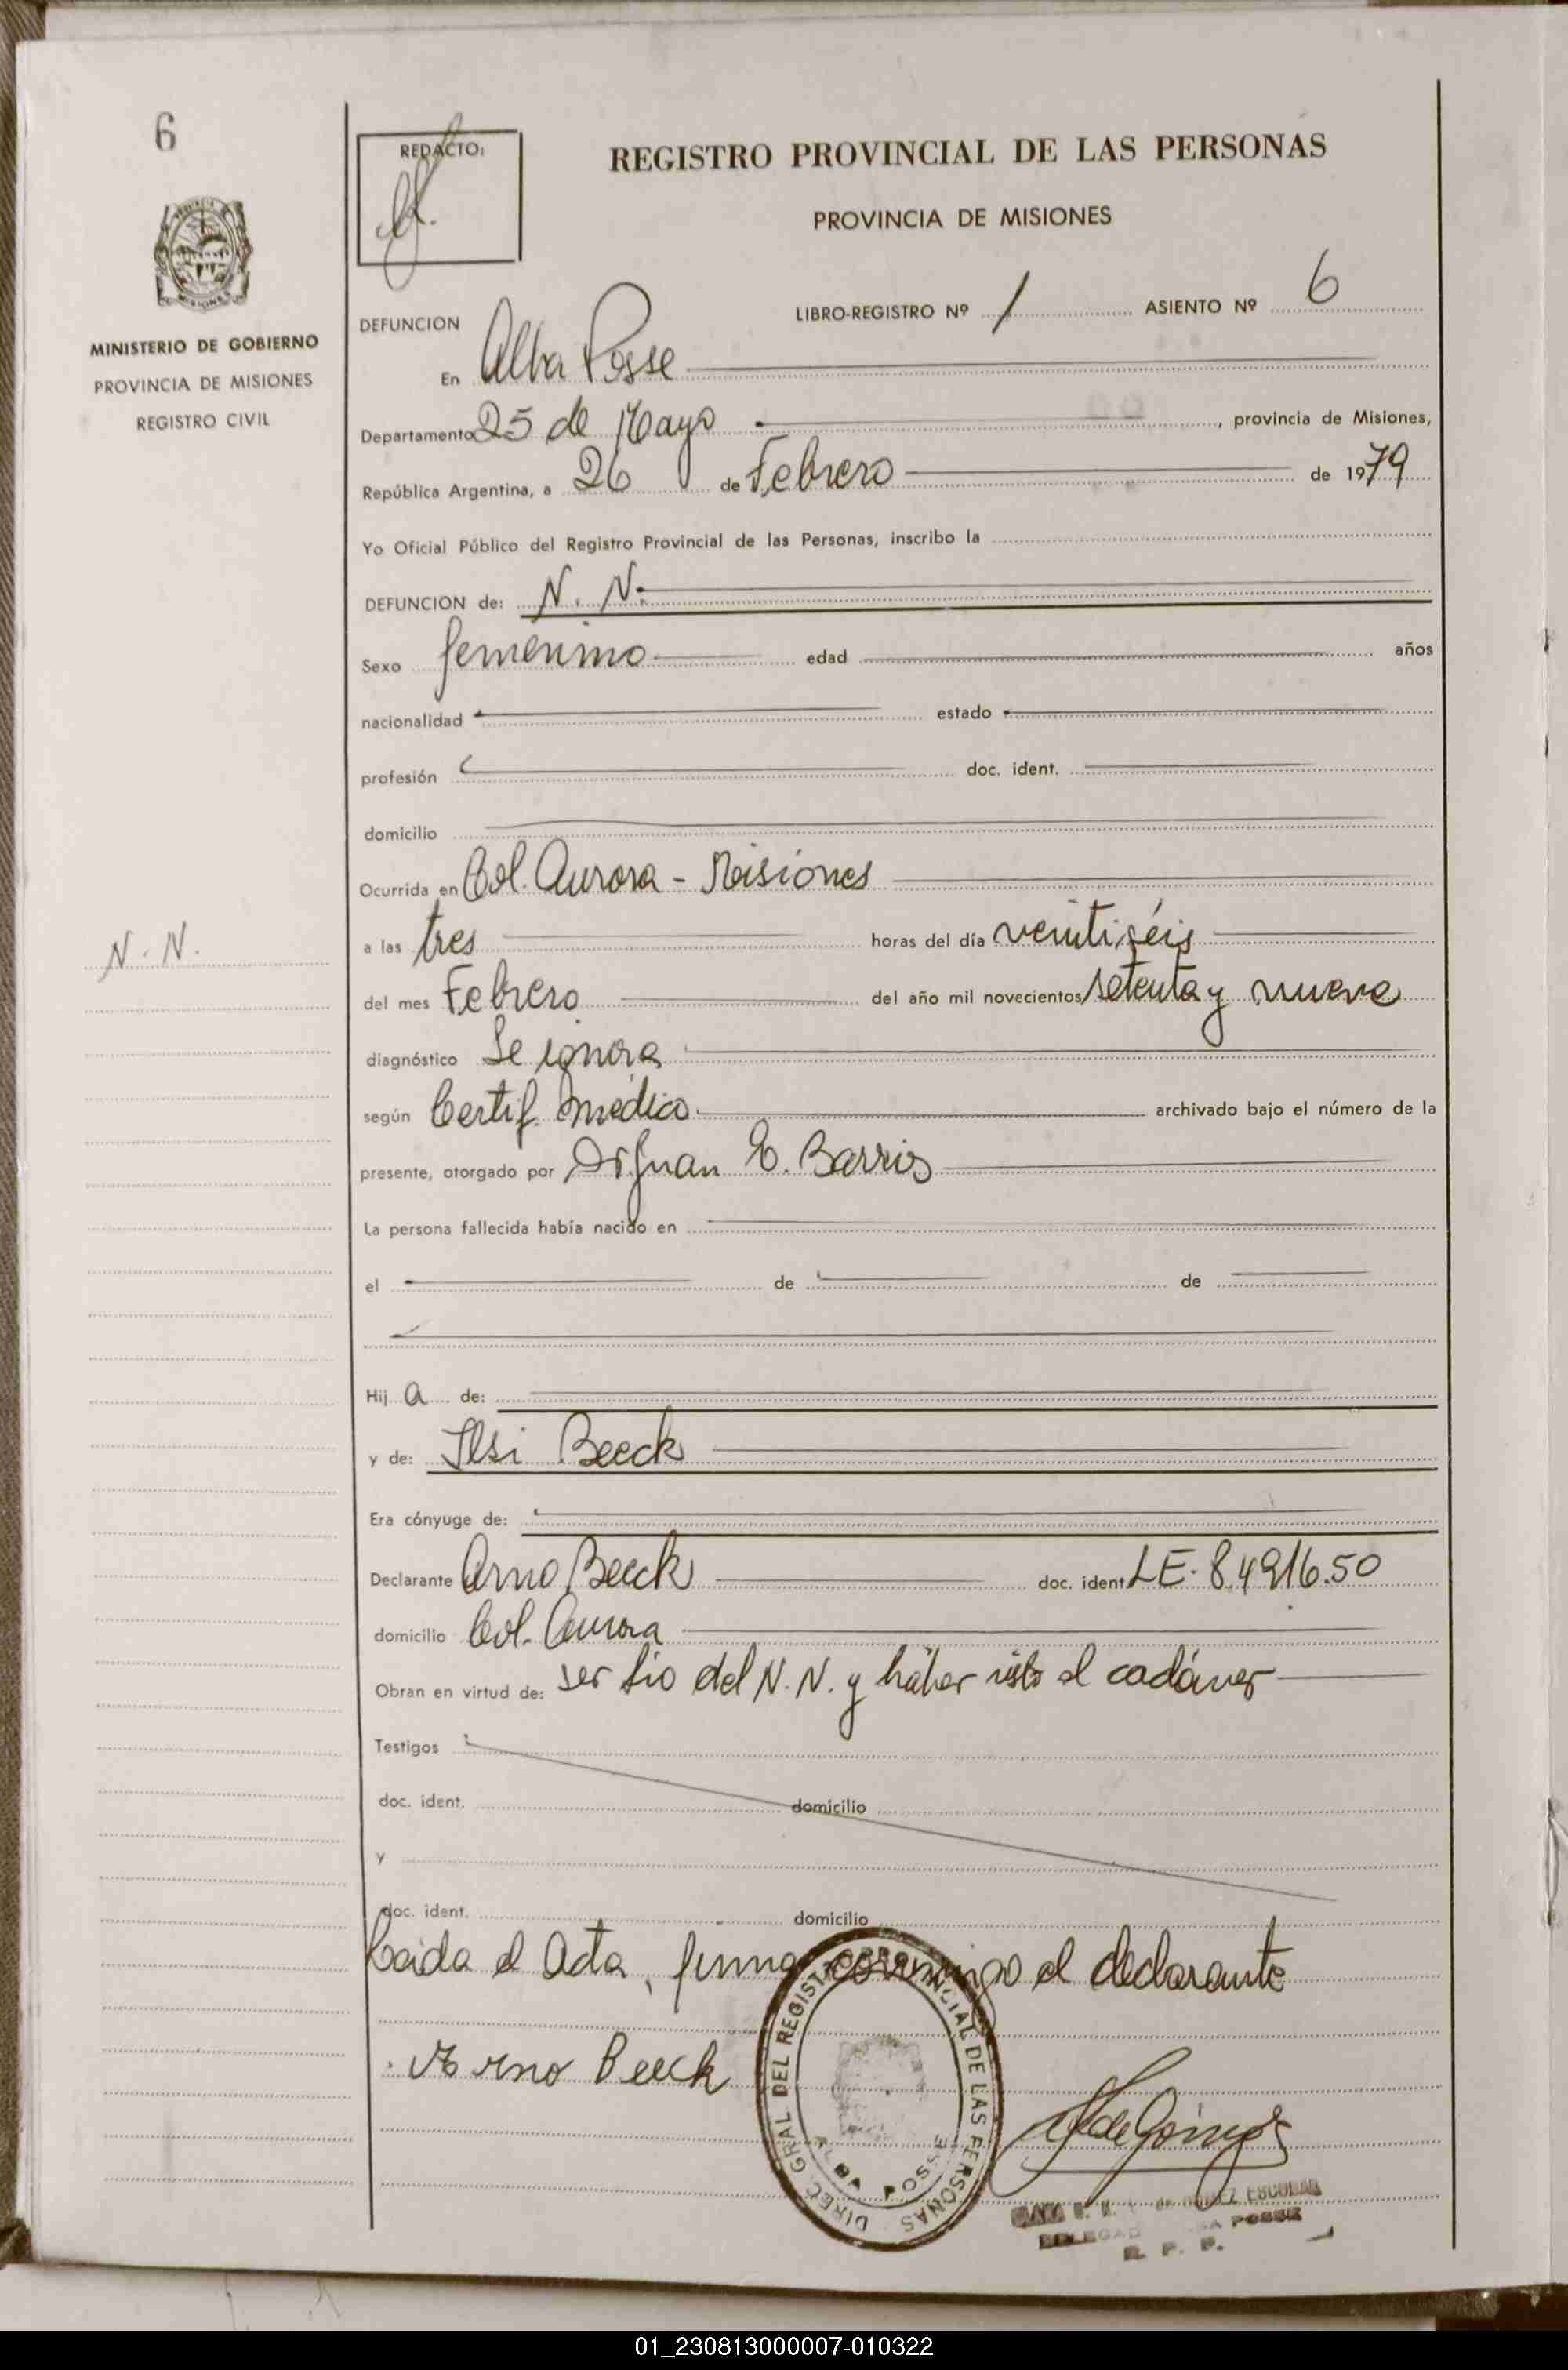 6
MINISTERIO DE GOBIERNO
PROVINCIA DE MISIONES
REGISTRO CIVIL
N. N.
REDACTO:
REGISTRO PROVINCIAL DE LAS PERSONAS
PROVINCIA DE MISIONES
LIBRO-REGISTRO Nº 1 ASIENTO Nº 6
DEFUNCION
En Alba Posse
Departamento 25 de Mayo, provincia de Misiones,
República Argentina, a 26 de Febrero de 1979
Yo Oficial Público del Registro Provincial de las Personas, inscribo la
DEFUNCION de: N. N.
Sexo femenino edad años
nacionalidad estado
profesión doc. ident.
domicilio
Ocurrida en Col. Aurora - Misiones
a las tres horas del día veintiséis
del mes Febrero del año mil novecientos setenta y nueve
diagnóstico Se ignora
según Certif. Médico archivado bajo el número de la
presente, otorgado por Dr Juan E. Barrios
La persona fallecida había nacido en
el de de
Hija de:
y de: Ilsi Beeck
Era cónyuge de:
Declarante Arno Beeck doc. ident LE. 8.4916.50
domicilio Col. Aurora
Obran en virtud de: ser tio del N. N. y haber visto el cadáver
Testigos
doc. ident. domicilio
y
doc. ident. domicilio
Leida el Acta, firma conmigo el declarante
Arno Beeck
DIREC. GRAL. DEL REGISTRO PROVINCIAL DE LAS PERSONAS
ALBA POSSE
ESCOBAR
POSSE
R. P. P.
01_230813000007-010322